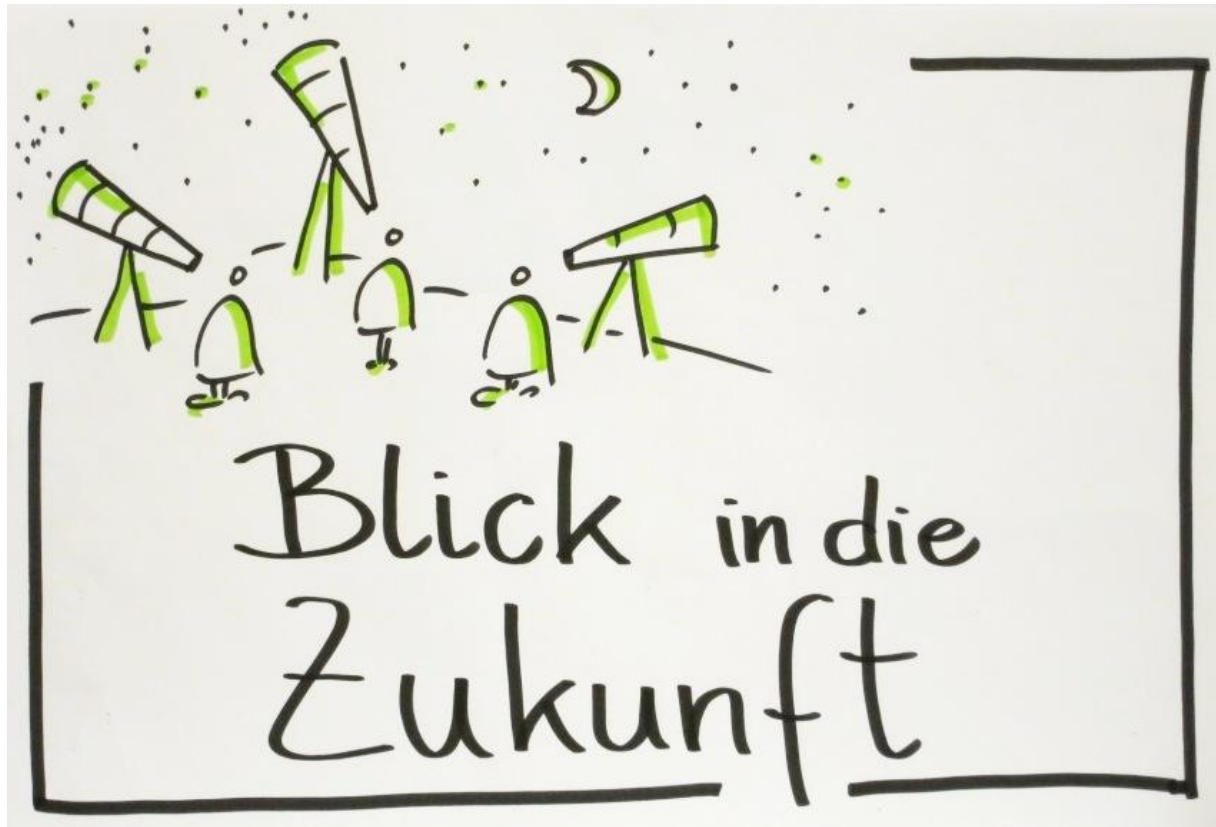 Blick in die
Zukunft